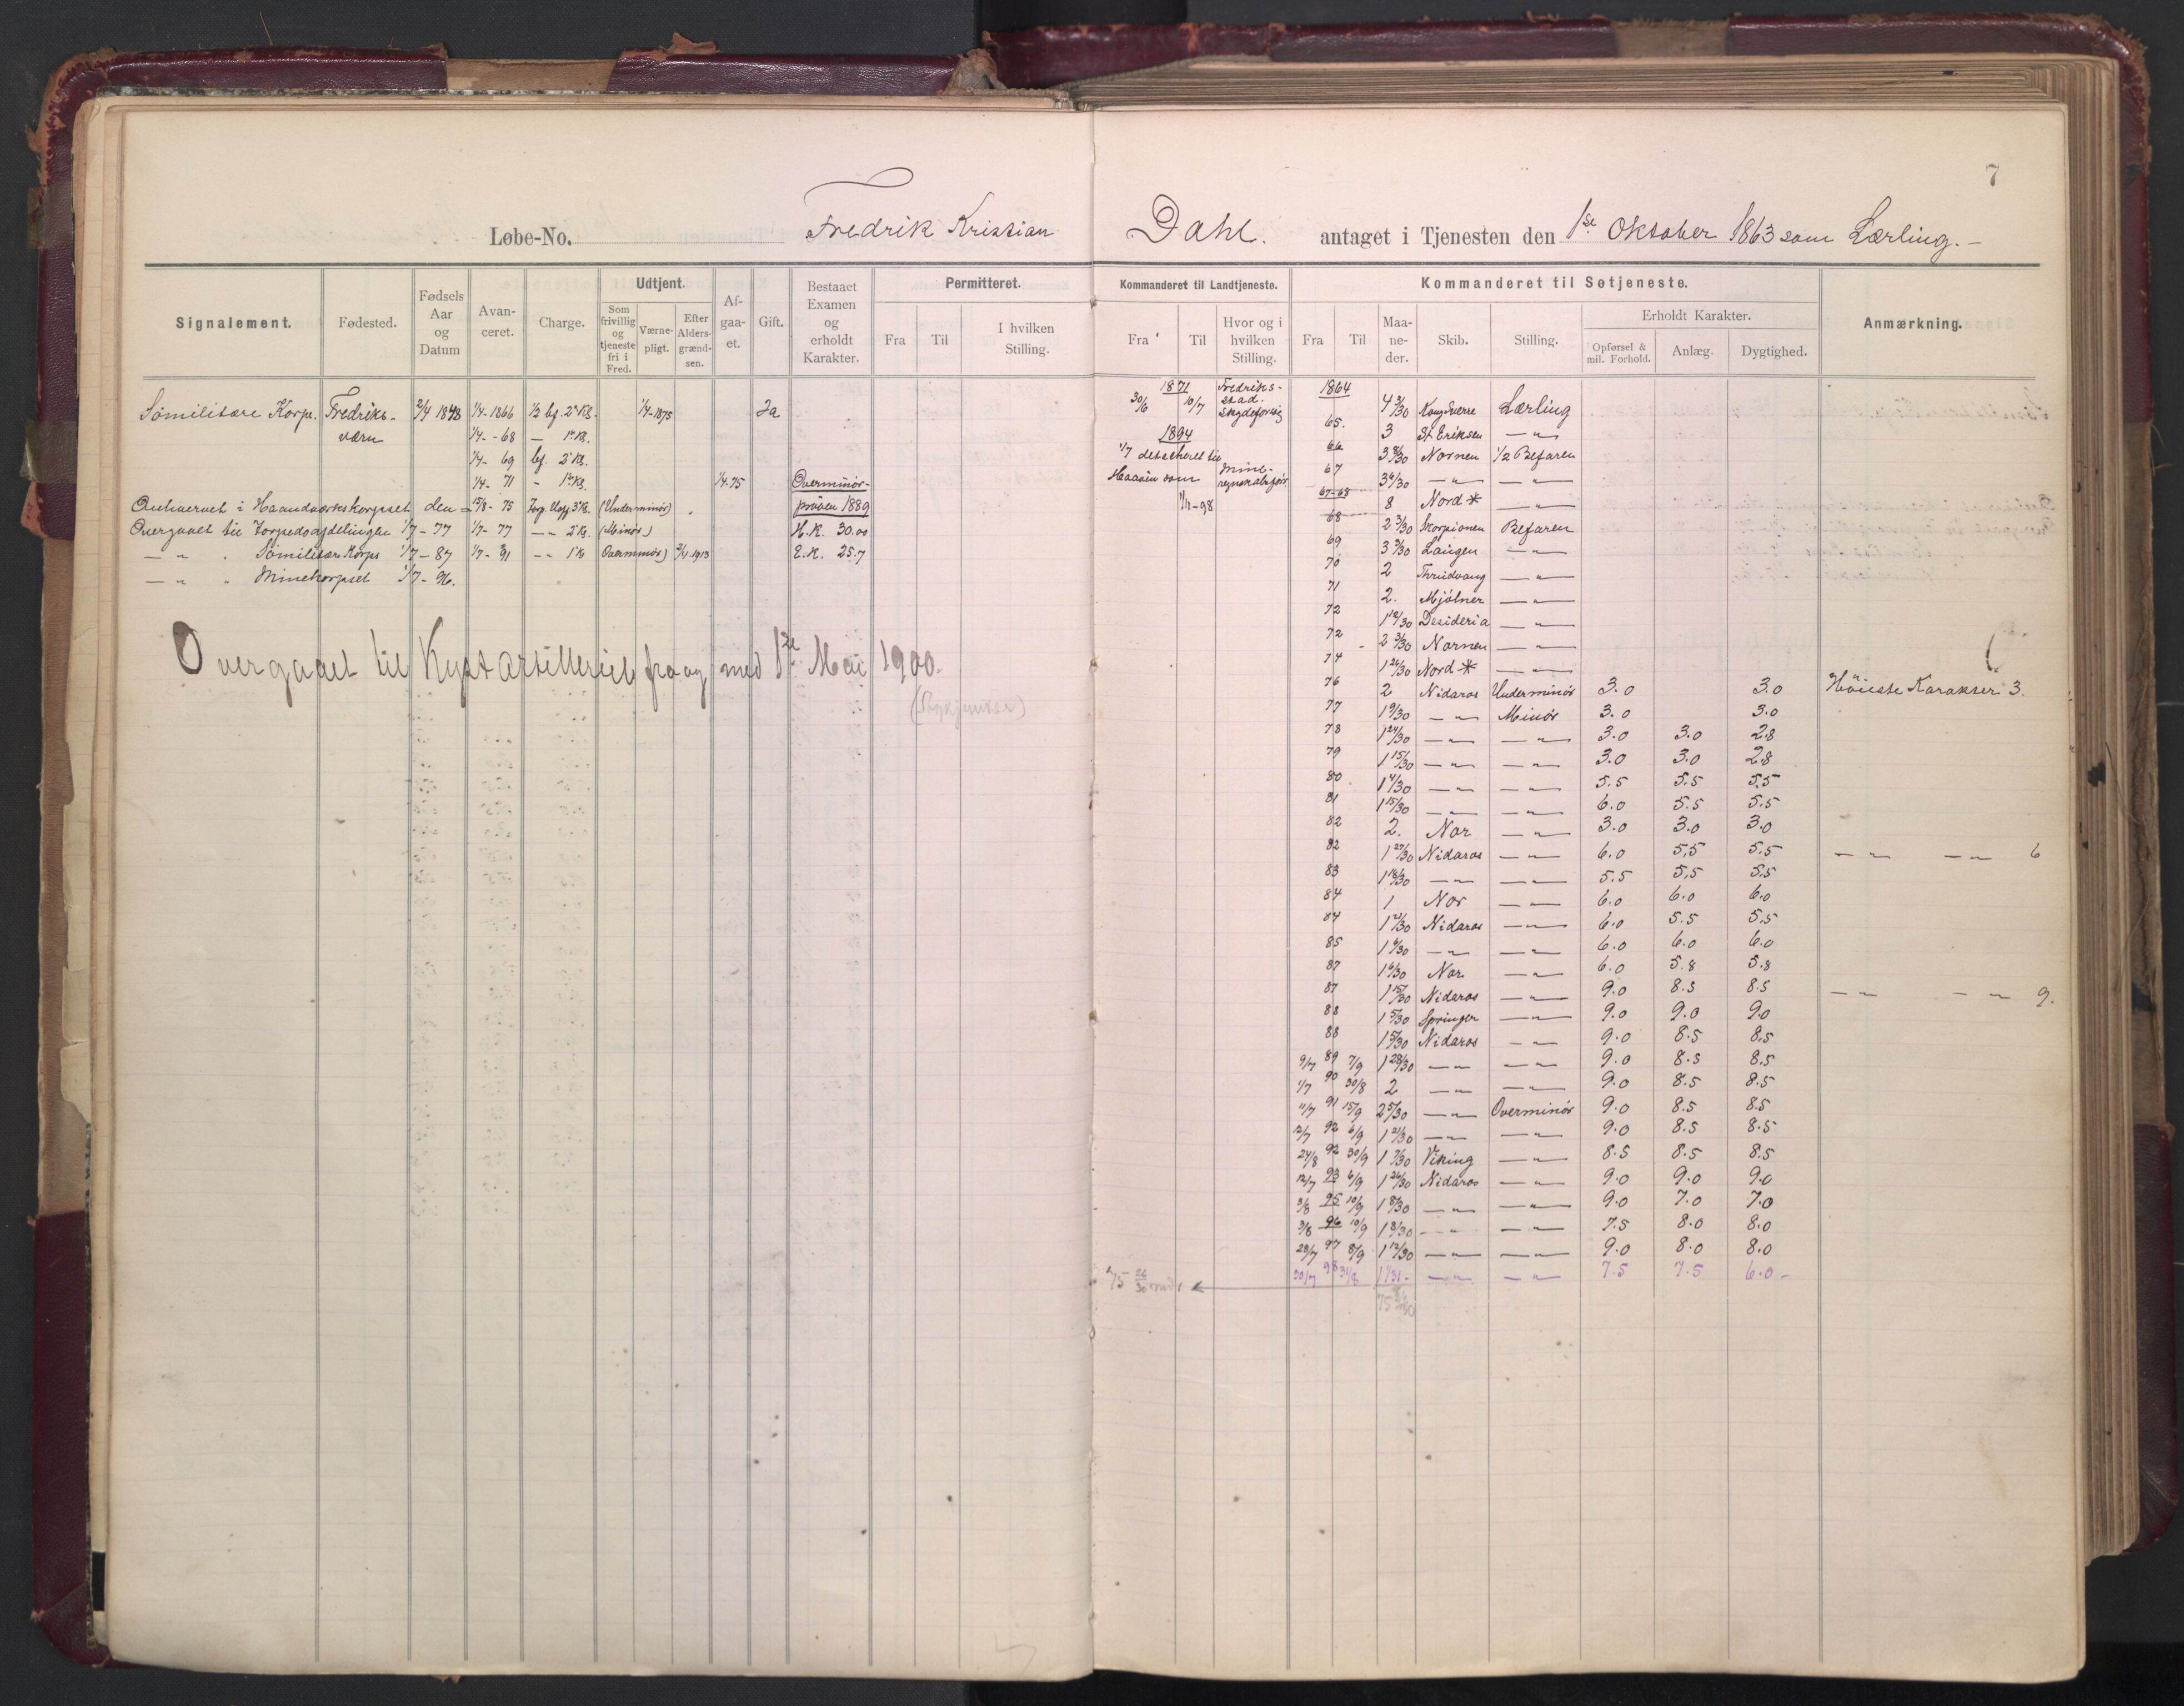 7
Løbe-No. Fredrik Kristian Dahl. antaget i Tjenesten den 1ste Oktober 1863 som Lærling.-
Signalement. Fødested. Fødsels Aar og Datum Avanceret. Charge. Udtjent. Afgaaet. Gift. Bestaaet Examen og erholdt Karakter. Permitteret.
Som frivillig og tjeneste fri i Fred. Værnepligt. Efter Aldersgrændsen. Fra Til I hvilken Stilling.
Sömilitære Korps. Fredriks- 2/4 1848 1/4-1866 1/2 bf. 2 Kl. 1/4-1875 Ja
værn 1/4--68 — 1 Kl.
1/4- 69 bf. 2 Kl.
1/4- 71 - 1 Kl. 1/4.75 Overminör-
i Haandværkskorpset den 15/8- 75 3 Kl. (Underminör) pröven 1889
Overgaaet til Torpedoafdelingen 1/7-77 1/7-77 —"— 2 Kl. (Minör) H.K. 30.00
—"— " Sömilitære Korps 1/7-87 1/7-91 —"— 1 Kl. Overminör) 2/4 1913 E.K. 25.7
—"— " Minekorpset 1/7-96.
Overgaaet til Kystartilleriet fra og med 1ste Mai 1900.
Kommanderet til Landtjeneste. Kommanderet til Søtjeneste. Anmærkning.
Fra Til Hvor og i hvilken Stilling. Fra Til Maaneder. Skib. Stilling. Erholdt Karakter.
Opførsel & mil. Forhold. Anlæg. Dygtighed.
1871 Fredriks-
30/6 10/7 stad.
1894
1/7 til Mine-
som
1/11-98
1864 Kong Sverre Lærling
65. 3 —"—
66 Nornen 1/2 Befaren
67 —"— —"—
67-68 8 Nord * —"—
68 2 3/30 Skorpionen Befaren
69 Laugen —"—
70 2 Thrudvang —"—
71 2. Mjölner —"—
72 Desideria —"—
72 Nornen —"—
74 Nord * —"—
76 2 Nidaros Underminör 3.0 3.0 Höieste Karakter 3.
77 1 9/30 —"— Minör 3.0 3.0
78 1 24/30 —"— —"— 3.0 3.0 2.8
79 1 15/30 —"— —"— 3.0 3.0 2.8
80 1 4/30 —"— —"— 5.5 5.5 5.5
81 1 15/30 —"— —"— 6.0 5.5 5.5
82 2. Nor —"— 3.0 3.0 3.0
82 1 27/30 Nidaros —"— 6.0 5,5 5.5 —"— —"— 6
83 1 18/30 —"— —"— 5.5 5,5 5,5
84 1 Nor —"— 6.0 6.0 6.0
84 1 21/30 Nidaros —"— 6.0 5.5 5.5
85 —"— —"— 6.0 6.0 6.0
87 1 6/30 Nor —"— 6.0 5.8 5.8
87 1 15/30 Nidaros —"— 9.0 8.5 8.5 —"— —"— 9.
88 1 5/30 Springer —"— 9.0 9.0 9.0
88 Nidaros —"— 9.0 8.5 8.5
9/7 89 7/9 1 28/30 —"— —"— 9.0 8.5 8.5
1/7 90 30/8 2 —"— —"— 9.0 8.5 8.5
11/7 91 15/9 2 5/30 —"— Overminör 9.0 8.5 8.5
12/7 92 6/9 1 21/30 —"— —"— 9.0 8.5 8.5
24/8 92 30/9 1 7/30 Viking —"— 8.5 8.5 8.5
12/7 93 6/9 1 26/30 Nidaros —"— 9.0 9.0 9.0
3/8 95 10/9 1 8/30 —"— —"— 9.0 7.0 7.0
3/8 96 10/9 1 8/30 —"— —"— 7.5 8.0 8.0
28/7 97 8/9 1 12/30 —"— —"— 9.0 8.0 8.0
30/7 98 31/8 —"— —"— 7.5 7.5 6.0-